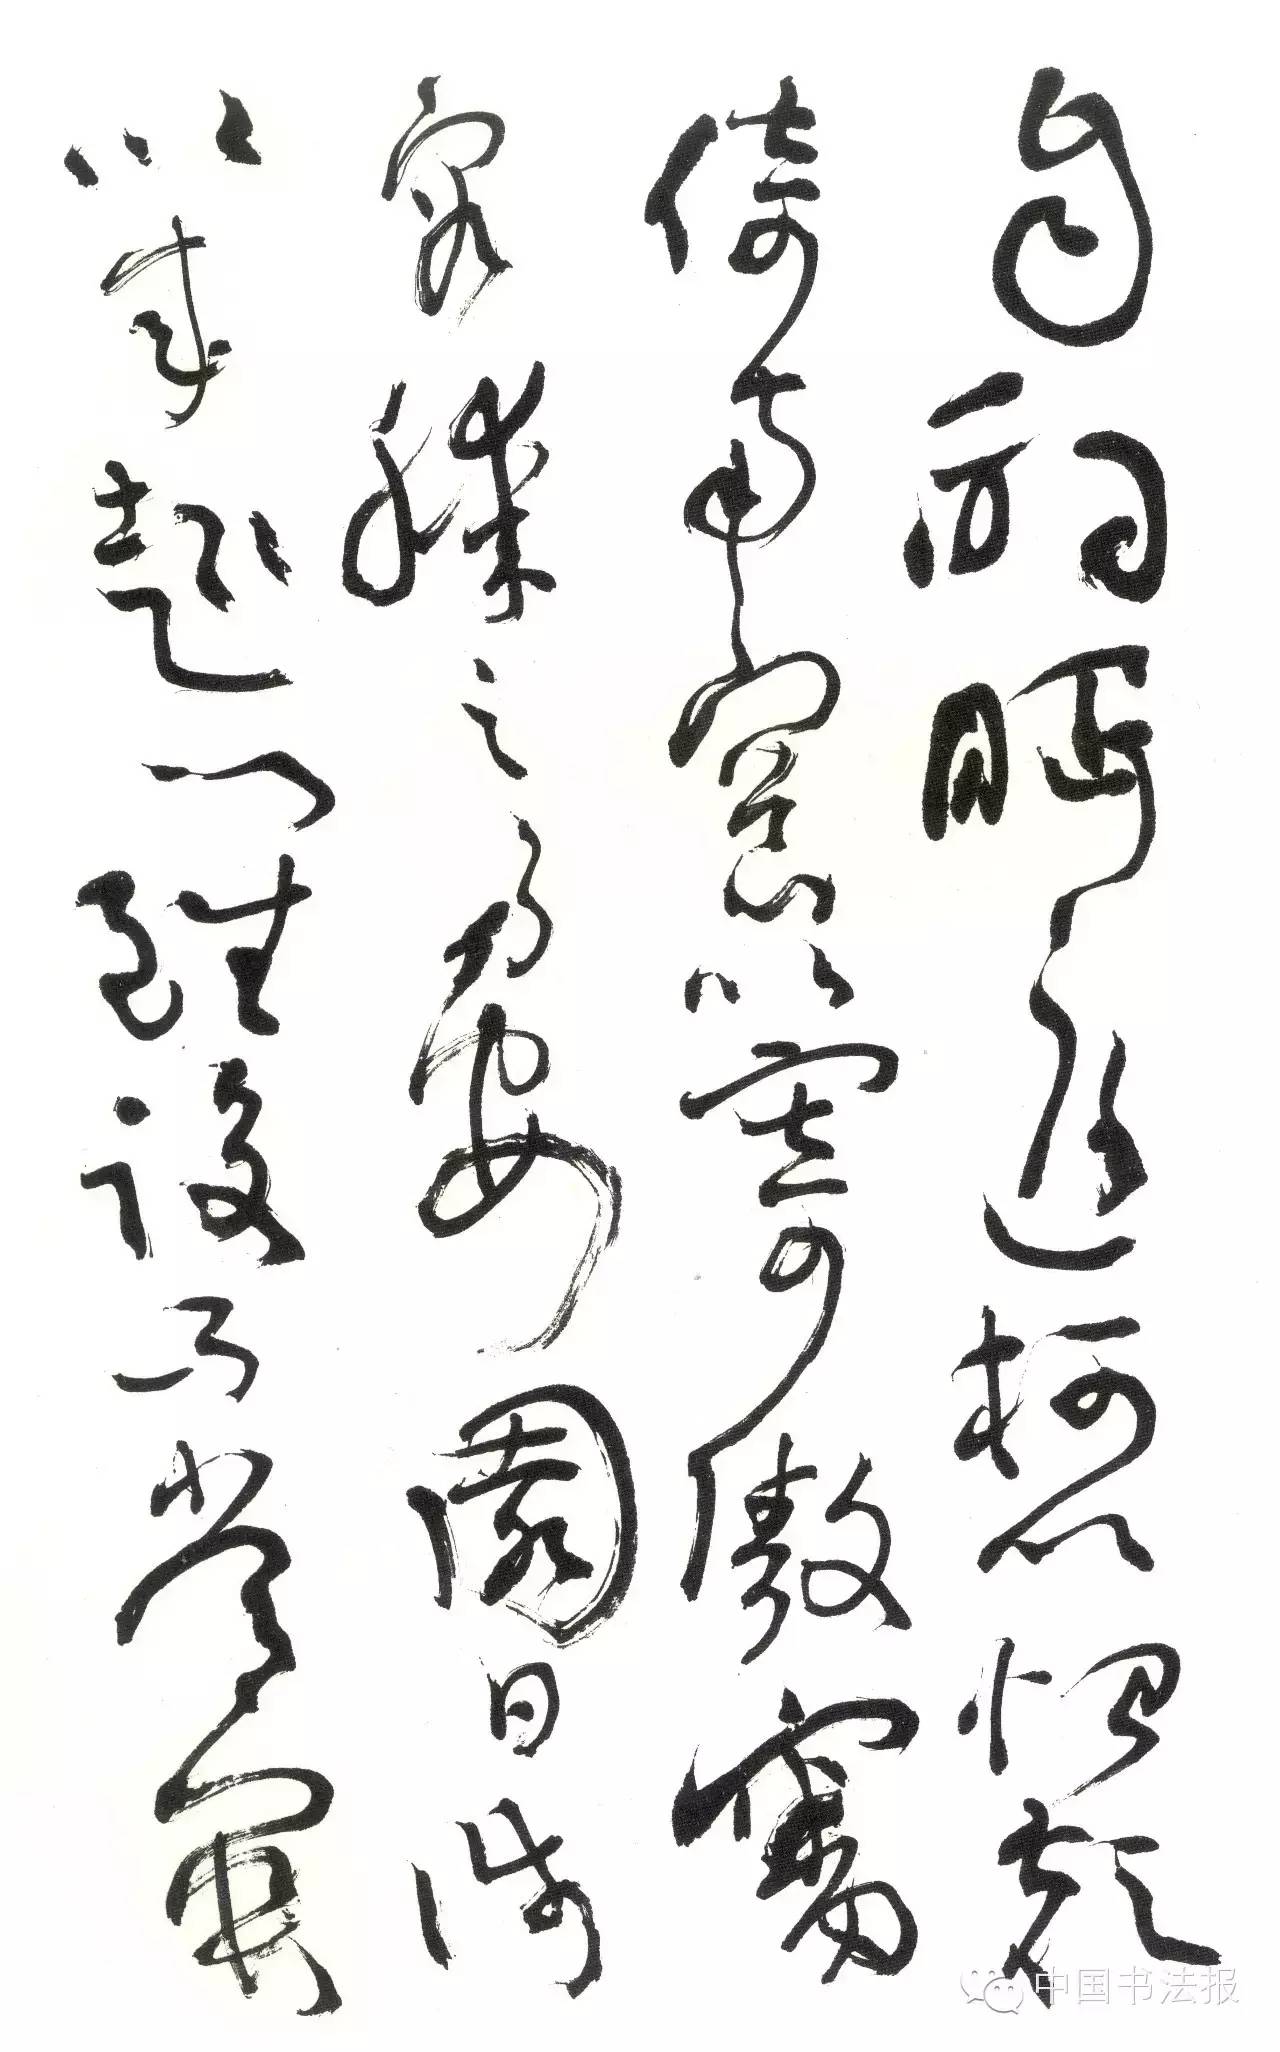 自酌眄庭柯以怡颜
倚南窗以寄傲审
容膝之易安园日涉
以成趣门虽设而常关
中国书法报